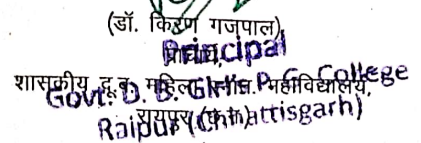 (डॉ. किरण गजपाल)
प्राचार्य,
Principal
शासकीय दू. ब. महिला स्नात. महाविद्यालय,
Govt. D. B. Girls P. G. College
रायपुर (छ.ग.)
Raipur (Chhattisgarh)